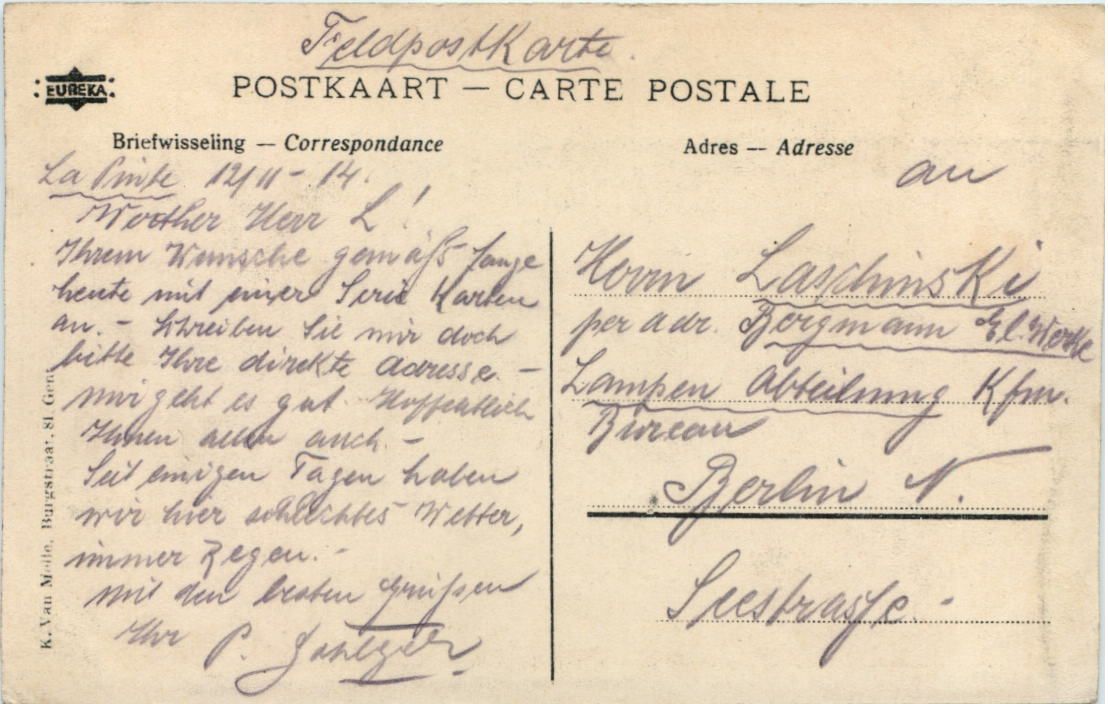 Feldpostkarte.
EUREKA
POSTKAART — CARTE POSTALE
Briefwisseling — Correspondance
La Pinte 12/11 - 14.
Werther Herr L!
Ihrem Wunsche gemäß fange
heute mit einer Serie Karten
an. - Schreiben Sie mir doch
bitte Ihre direkte Adresse. -
mir geht es gut. Hoffentlich
Ihnen allen auch. -
Seit einigen Tagen haben
wir hier schlechtes Wetter,
immer Regen. -
Mit den besten Grüßen
Ihr P.
Adres — Adresse
an
Herrn Laschinski
per Adr. Bergmann El. Werke
Lampen Abteilung Kfm.
Büreau
Berlin N.
Seestrasse. -
K. Van Melle, Burgstraat, 81, Gen